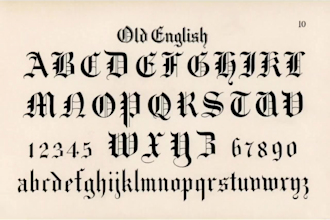 10
Old English
ABCDEFGHIKL
MNOPQRSTUV
12345 WXYZ 67890
abcdefghijklmnopqrstuvwxyz